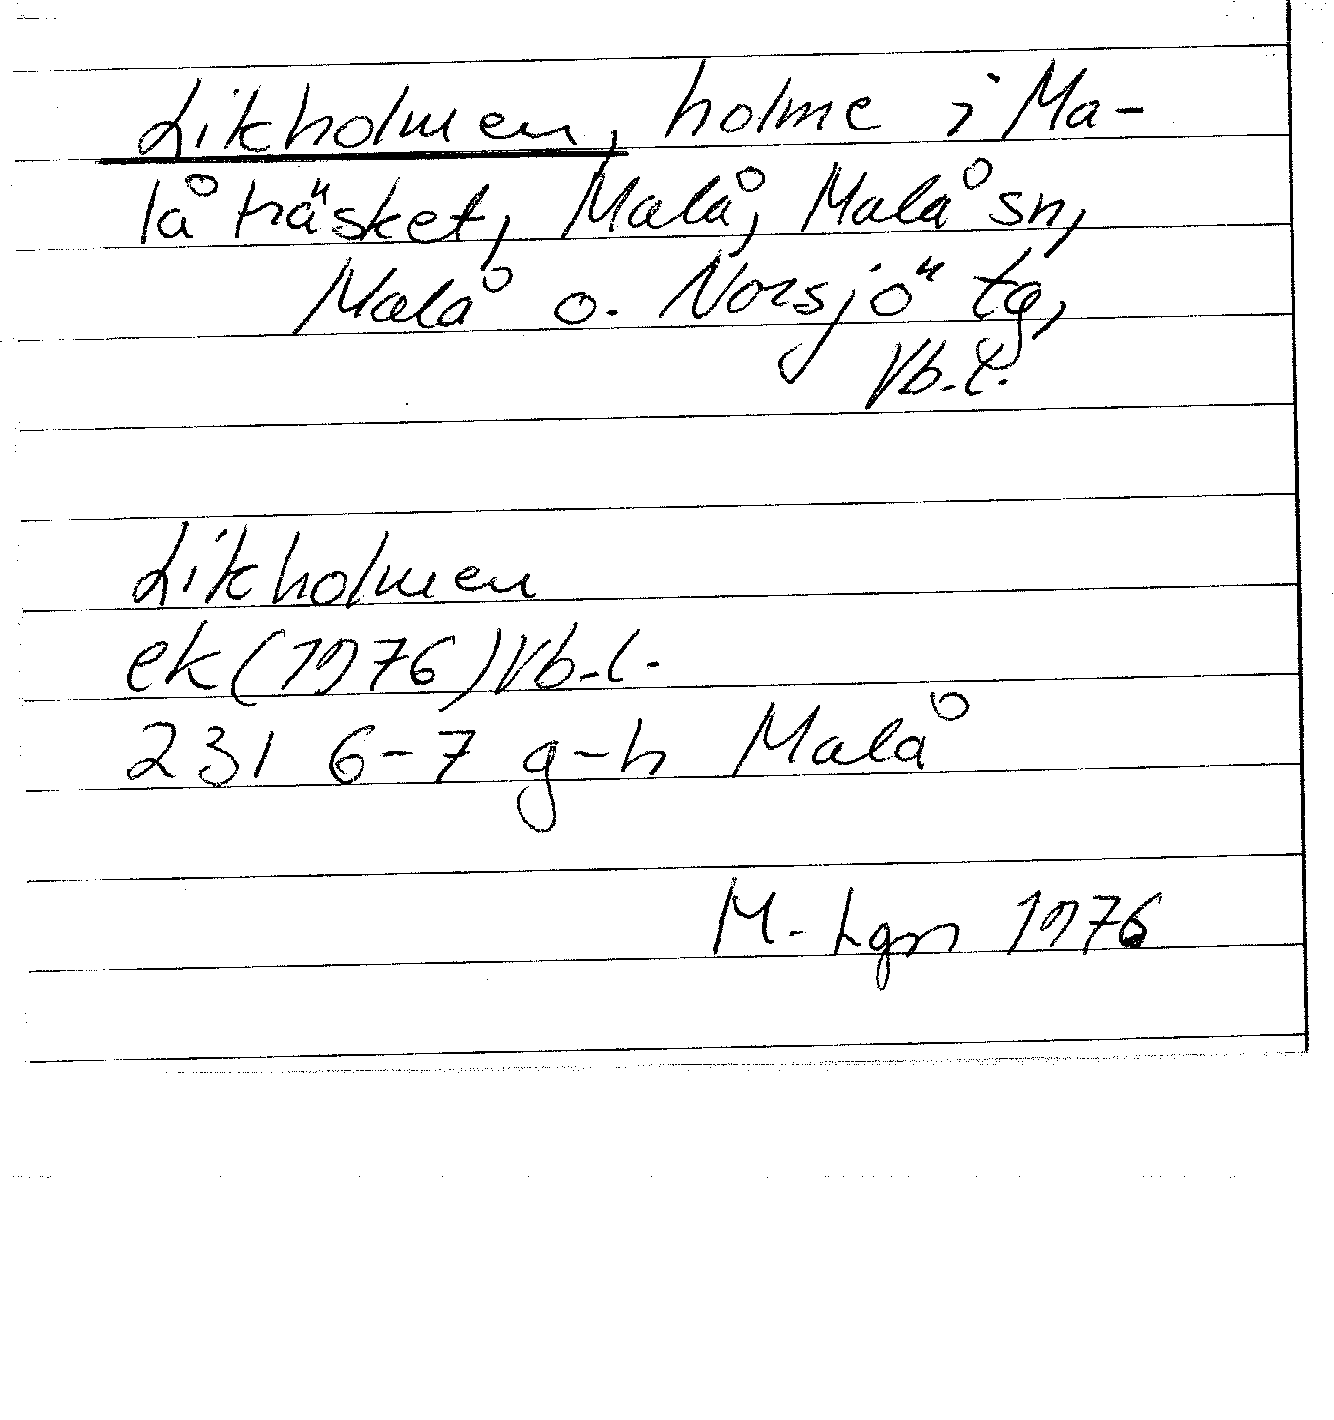 Likholmen, holme i Ma-
låträsket, Malå, Malå sn,
Malå o. Norsjö tg,
Vb.l.
Likholmen
ek (1976) Vb.l.
231 6-7 g-h Malå
M. Lgn 1976